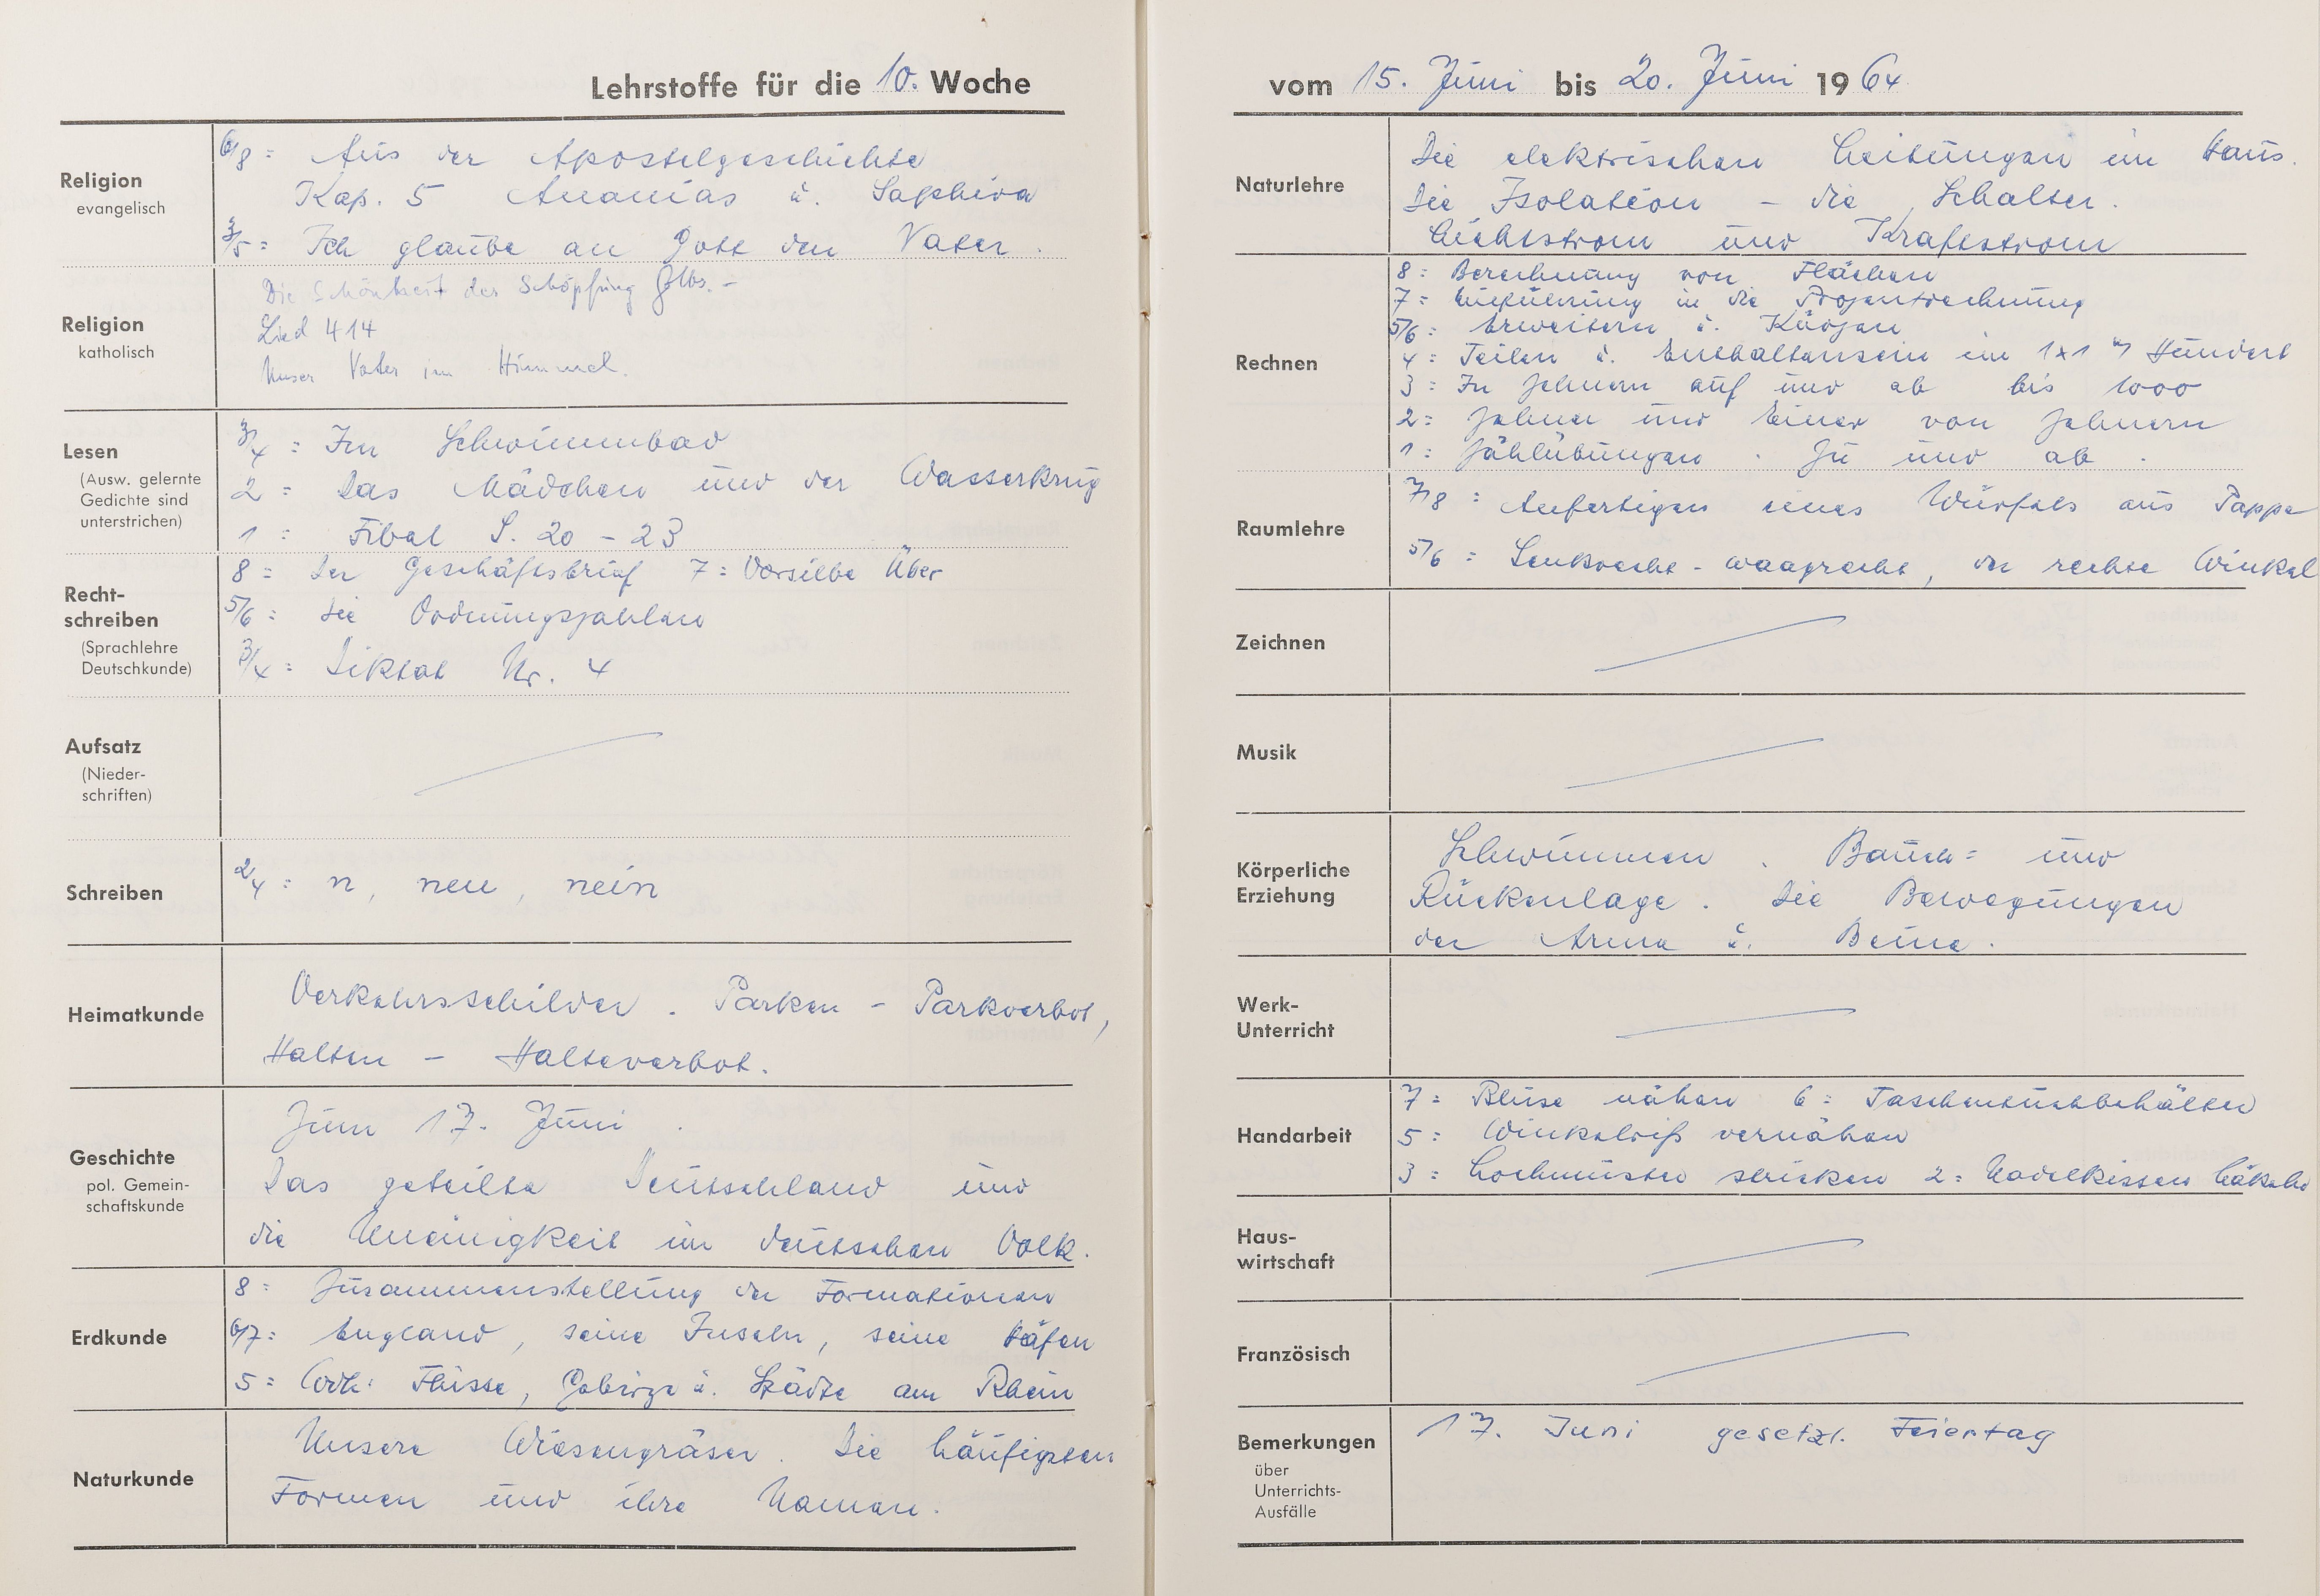 Lehrstoffe für die 10. Woche
Religion
evangelisch
6/8 = Aus der Apostelgeschichte
Kap. 5 Ananias u. Saphira
3/5 = Ich glaube an Gott den Vater.
Religion
katholisch
Die Schönheit der Schöpfung
Lied 414
Unser Vater im Himmel.
Lesen
(Ausw. gelernte
Gedichte sind
unterstrichen)
3/4 = Im Schwimmbad
2 = Das Mädchen und der Wasserkrug
1 = Fibel S. 20 - 23
Recht-
schreiben
(Sprachlehre
Deutschkunde)
8 = Der Geschäftsbrief 7 = Vorsilbe Über
5/6 = Die Ordnungszahlen
3/4 = Diktat Nr. 4
Aufsatz
(Nieder-
schriften)
Schreiben
2/4 = n, neu, nein
Heimatkunde
Verkehrsschilder. Parken - Parkverbot,
Halten - Halteverbot.
Geschichte
pol. Gemein-
schaftskunde
Zum 17. Juni.
Das geteilte Deutschland und
die Uneinigkeit im deutschen Volk.
Erdkunde
8 = Zusammenstellung der Formationen
6/7 = England, seine Inseln, seine Häfen
5 = Wdh: Flüsse, Gebirge u. Städte am Rhein
Naturkunde
Unsere Wiesengräser. Die häufigsten
Formen und ihre Namen.
vom 15. Juni bis 20. Juni 1964
Naturlehre
Die elektrischen Leitungen im Haus.
Die Isolation - die Schalter.
Lichtstrom und Kraftstrom
Rechnen
8 = Berechnung von Flächen
7 = Einführung in die Prozentrechnung
5/6 = Erweitern u. Kürzen
4 = Teilen u. Enthaltensein im 1x1 Hundert
3 = In Zehnern auf und ab bis 1000
2 = Zehner und Einer von Zehnern
1 = Zählübungen. Zu und ab.
Raumlehre
7/8 = Anfertigen eines Würfels aus Pappe
5/6 = Senkrecht - waagrecht, der rechte Winkel
Zeichnen
Musik
Körperliche
Erziehung
Schwimmen. Bauch= und
Rückenlage. Die Bewegungen
der Arme u. Beine.
Werk-
Unterricht
Handarbeit
7 = Bluse nähen 6 = Taschentuchbehälter
5 = Winkelriß vernähen
3 = Lochmuster stricken 2 = Nadelkissen häkeln
Haus-
wirtschaft
Französisch
Bemerkungen
über
Unterrichts-
Ausfälle
17. Juni gesetzl. Feiertag